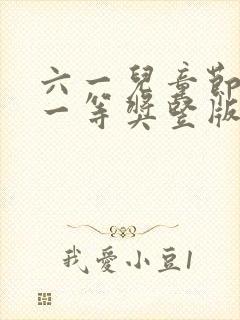 六一兒童節
一等獎豎版
我愛小豆1